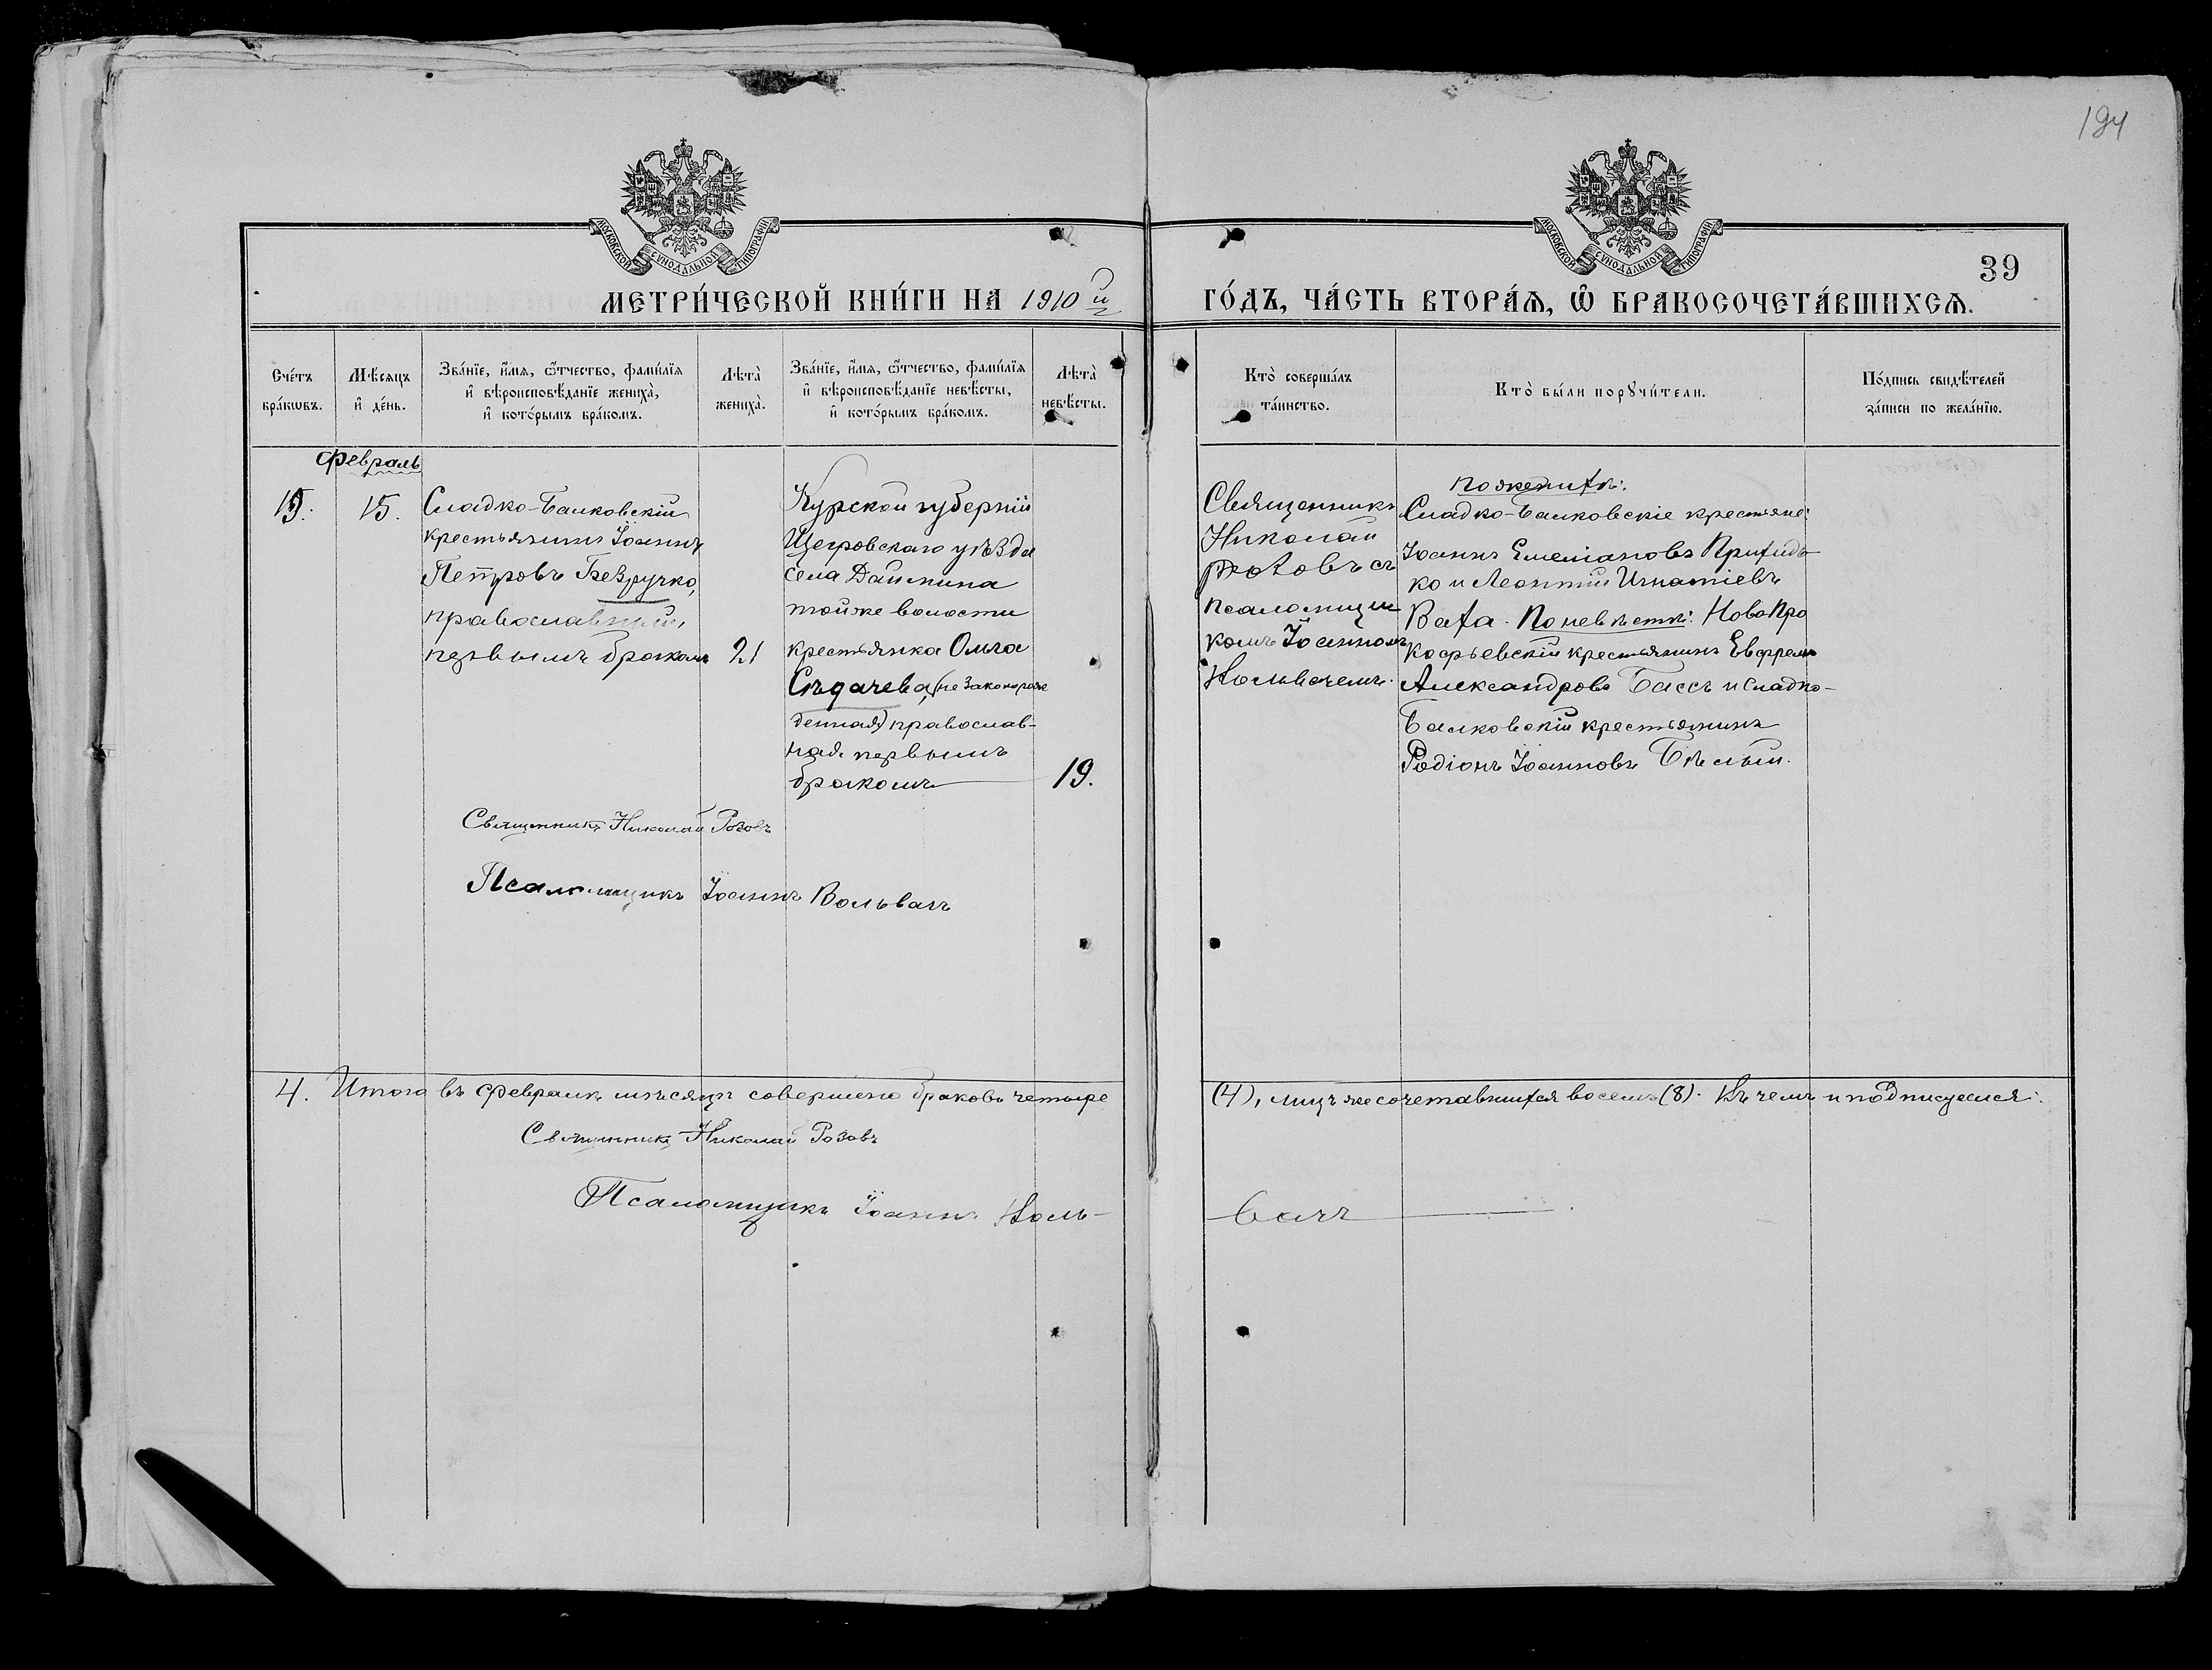 194
39
МОСКОВСКОЙ СѴНОДАЛЬНОЙ ТИПОГРАФІИ
МОСКОВСКОЙ СѴНОДАЛЬНОЙ ТИПОГРАФІИ
МЕТРИ́ЧЕСКОЙ КНИ́ГИ НА 1910 й ГО́ДЪ, ЧА́СТЬ ВТОРА́Ѧ, Ѡ҆ БРАКОСОЧЕТА́ВШИХСѦ.
Сче́тъ бра́кѡвъ.
Мѣ́сѧцъ и҆ де́нь.
Зва́нїе, и҆́мѧ, ѻ҆́тчество, фами́лїѧ
и҆ вѣроисповѣ́данїе жениха̀,
и҆ кото́рымъ бра́комъ.
Лѣта̀ жениха̀.
Зва́нїе, и҆́мѧ, ѻ҆́тчество, фами́лїѧ
и҆ вѣроисповѣ́данїе невѣ́сты,
и҆ кото́рымъ бра́комъ.
Лѣта̀ невѣ́сты.
Кто̀ соверша́лъ та́инство.
Кто̀ бы́ли порꙋчи́тели.
По́дпись свидѣ́телей за́писи по жела́нїю.
Февраль
15.
Сладко-Балковскій
крестьянинъ Іоаннъ
Петровъ Безручко,
православный,
первымъ бракомъ
21
Курской губерніи
Щегровскаго уѣзда
села Даймина
тойже волости
крестьянка Ольга
Сѣдачева, (незаконорож
денная) православ-
ная, первымъ
бракомъ
19.
Священникъ
Николай
Розовъ съ
псаломщи
комъ Іоанномъ
Вольвачемъ.
по женихѣ:
Сладко-Балковскіе крестьяне:
Іоаннъ Емеліановъ Прихидь
ко и Леонтій Игнатіевъ
Ваха. По невѣстѣ: НовоПро
кофьевскій крестьянинъ Евфремъ
Александровъ Бассъ и Сладко-
Балковскій крестьянинъ
Родіонъ Іоанновъ Бѣлый.
Священникъ Николай Розовъ
Псаломщикъ Іоаннъ Вольвачъ
4. Итого въ Февралѣ мѣсяцѣ совершено браковъ четыре (4), лицъ же сочетавшихся восемь (8). Въ чемъ и подписуемся:
Священникъ Николай Розовъ
Псаломщикъ Іоаннъ Воль-
вачъ